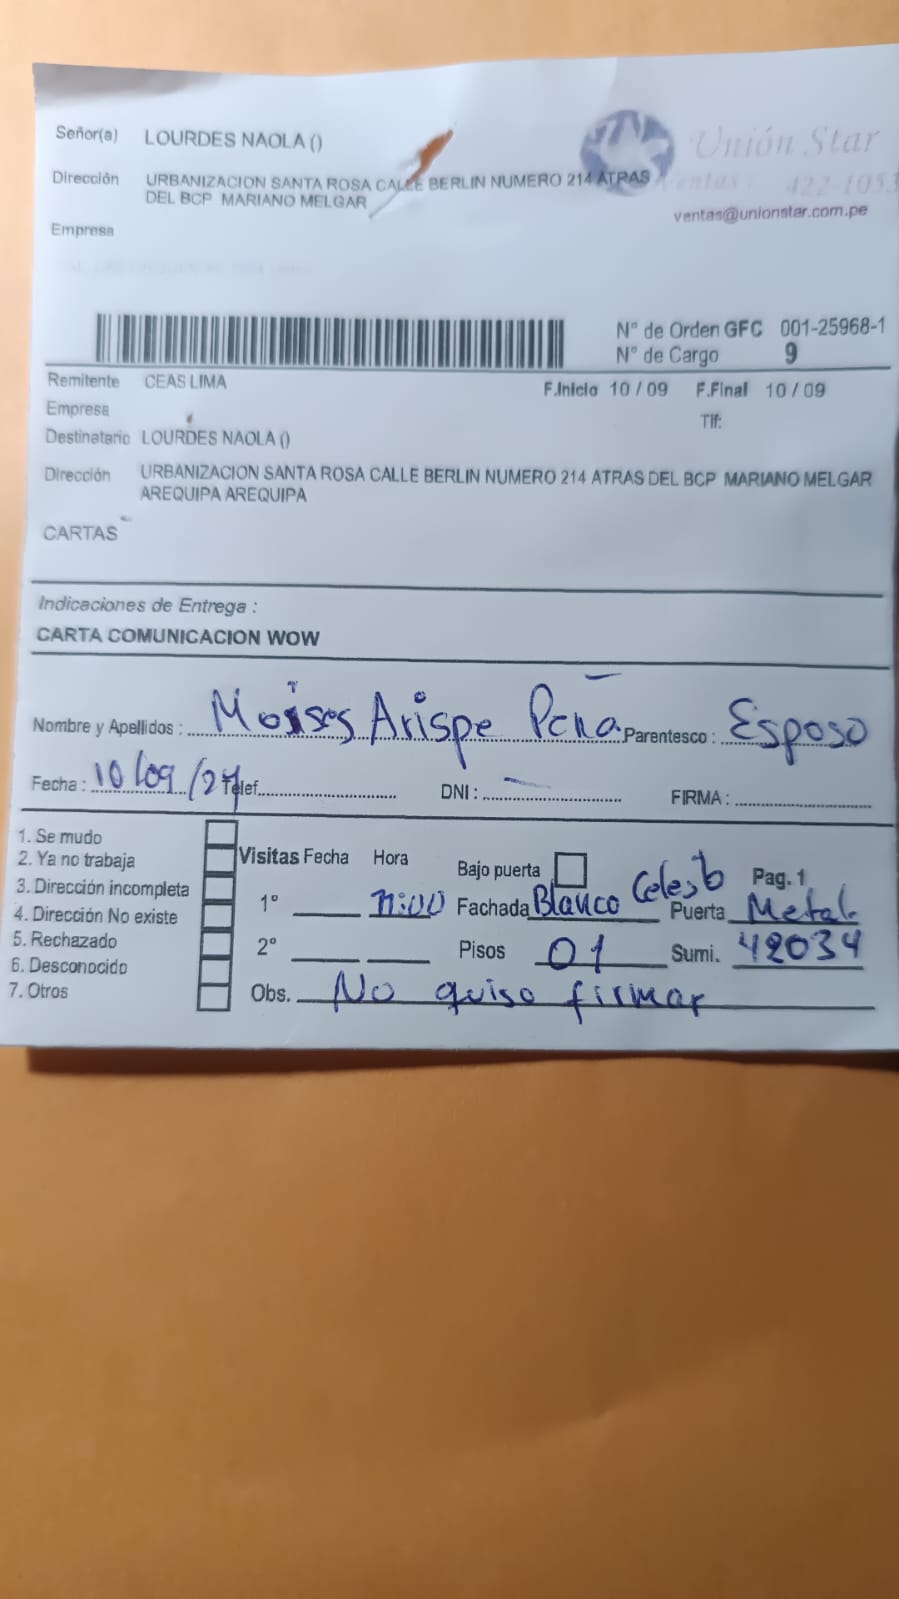 Señor(a) LOURDES NAOLA ()
Unión Star
Dirección URBANIZACION SANTA ROSA CALLE BERLIN NUMERO 214 ATRAS
DEL BCP MARIANO MELGAR
Ventas: 422-1053
ventas@unionstar.com.pe
Empresa
N° de Orden GFC 001-25968-1
N° de Cargo 9
Remitente CEAS LIMA
F.Inicio 10 / 09 F.Final 10 / 09
Empresa
Tlf:
Destinatario LOURDES NAOLA ()
Dirección URBANIZACION SANTA ROSA CALLE BERLIN NUMERO 214 ATRAS DEL BCP MARIANO MELGAR
AREQUIPA AREQUIPA
CARTAS
Indicaciones de Entrega :
CARTA COMUNICACION WOW
Nombre y Apellidos : Moises Arispe Peña Parentesco : Esposo
Fecha : 10/09/24 Telef. DNI : FIRMA :
1. Se mudo
2. Ya no trabaja
3. Dirección incompleta
4. Dirección No existe
5. Rechazado
6. Desconocido
7. Otros
Visitas Fecha Hora Bajo puerta Pag. 1
1° 11:00 Fachada Blanco Celeste Puerta Metal
2° Pisos 01 Sumi. 42034
Obs. No quiso firmar